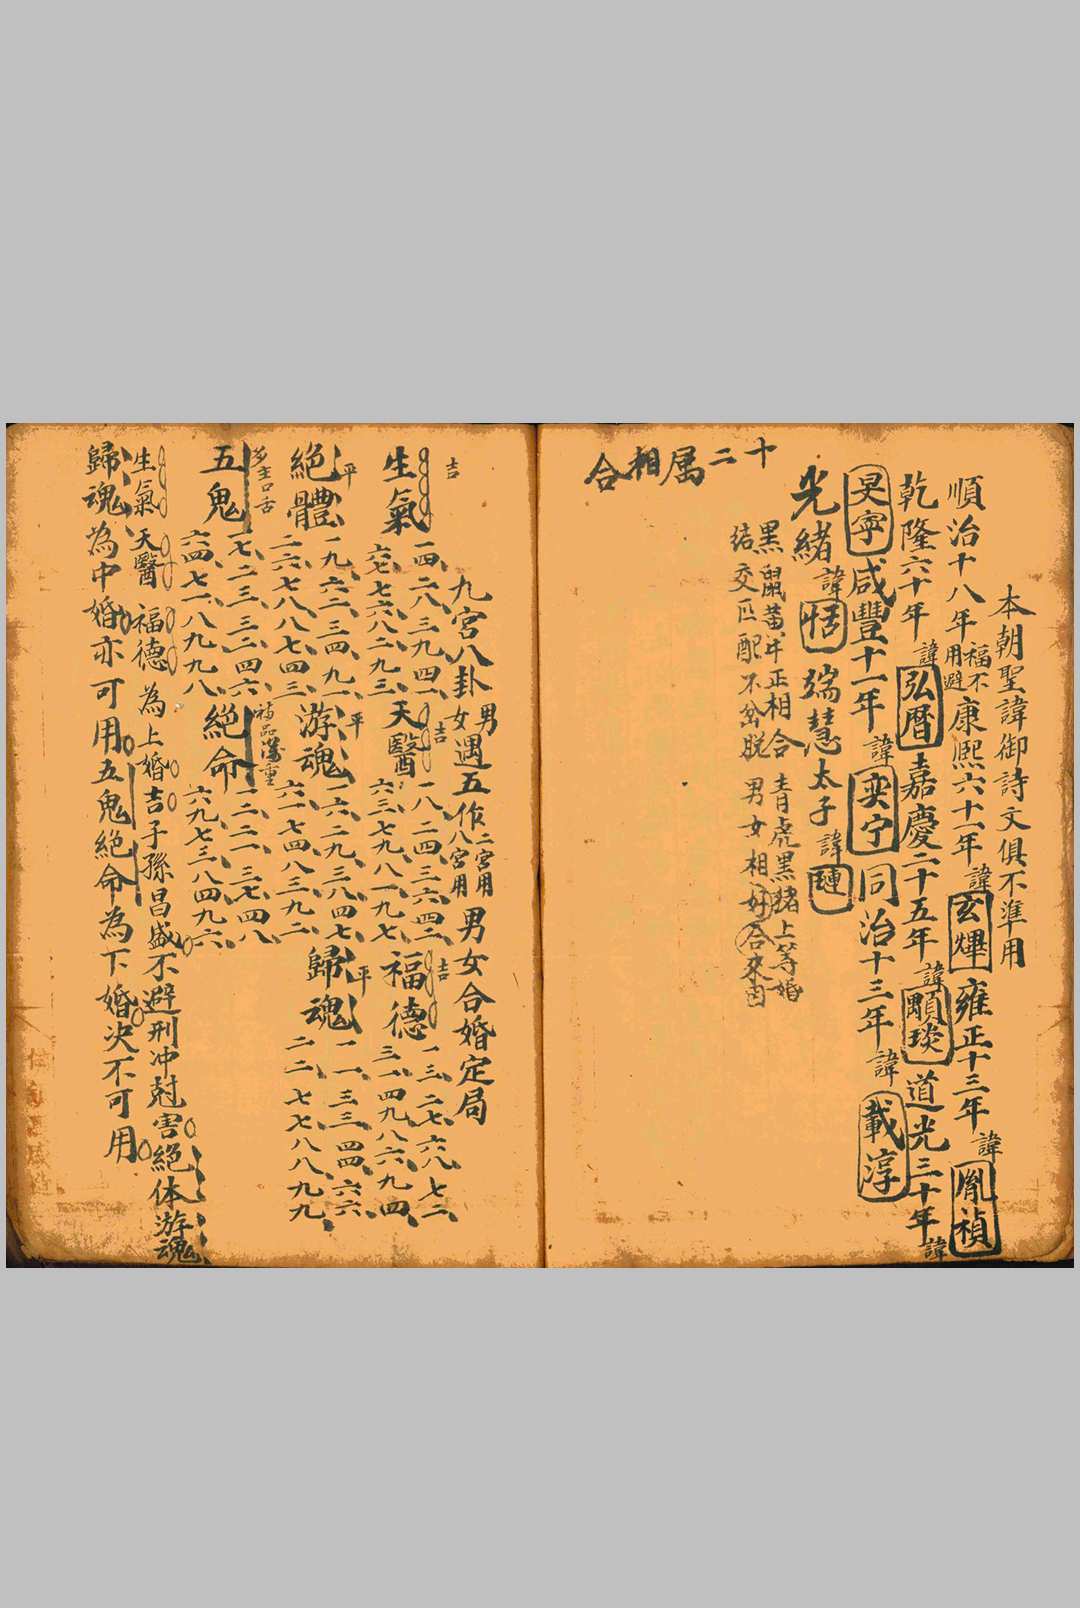 本朝聖諱御詩文俱不準用
順治十八年福不用避康熙六十一年諱玄燁雍正十三年諱胤禎
乾隆六十年諱弘曆嘉慶二十五年諱顒琰道光三十年諱
旻寧咸豐十一年諱奕宁同治十三年諱載淳
光緒諱恬端慧太子諱璉
十二属相合
黑鼠黄牛正相合青虎黑猪上等婚
結交匹配不岔脱男女相好合來由
九宮八卦男女遇五作二宮用八宮用男女合婚定局
吉生氣一四、二八、三九、四一、六七、七六、八二、九三、吉天醫一八、二四、三六、四二、六三、七九、八一、九七、吉福德一三、二七、六八、七二、三一、四九、八六、九四、
平絕體一九、六二、三四、九一、二六、七八、八七、四三、平游魂一六、二九、三八、四七、六一、七四、八三、九二、平歸魂一一、三三、四四、六六、二二、七七、八八、九九、
五鬼多主口舌一七、二三、三二、四六、六四、七一、八九、九八、絕命一二、二一、三七、四八、六九、七三、八四、九六、
生氣天醫福德為上婚吉子孫昌盛不避刑冲尅害絕体游魂、
歸魂、為中婚亦可用五鬼絕命為下婚决不可用